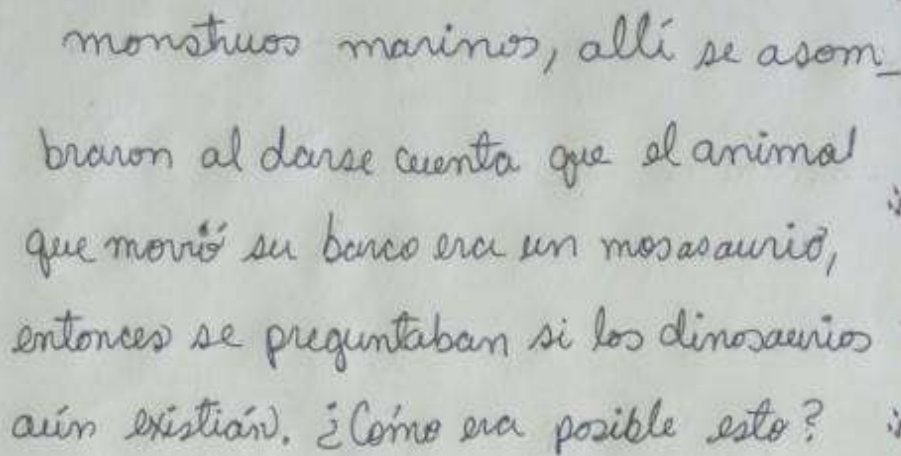 monstruos marinos, allí se asom_
braron al darse cuenta que el animal
que movió su barco era un mosasaurio,
entonces se preguntaban si los dinosaurios
aún existián. ¿Cómo era posible esto?